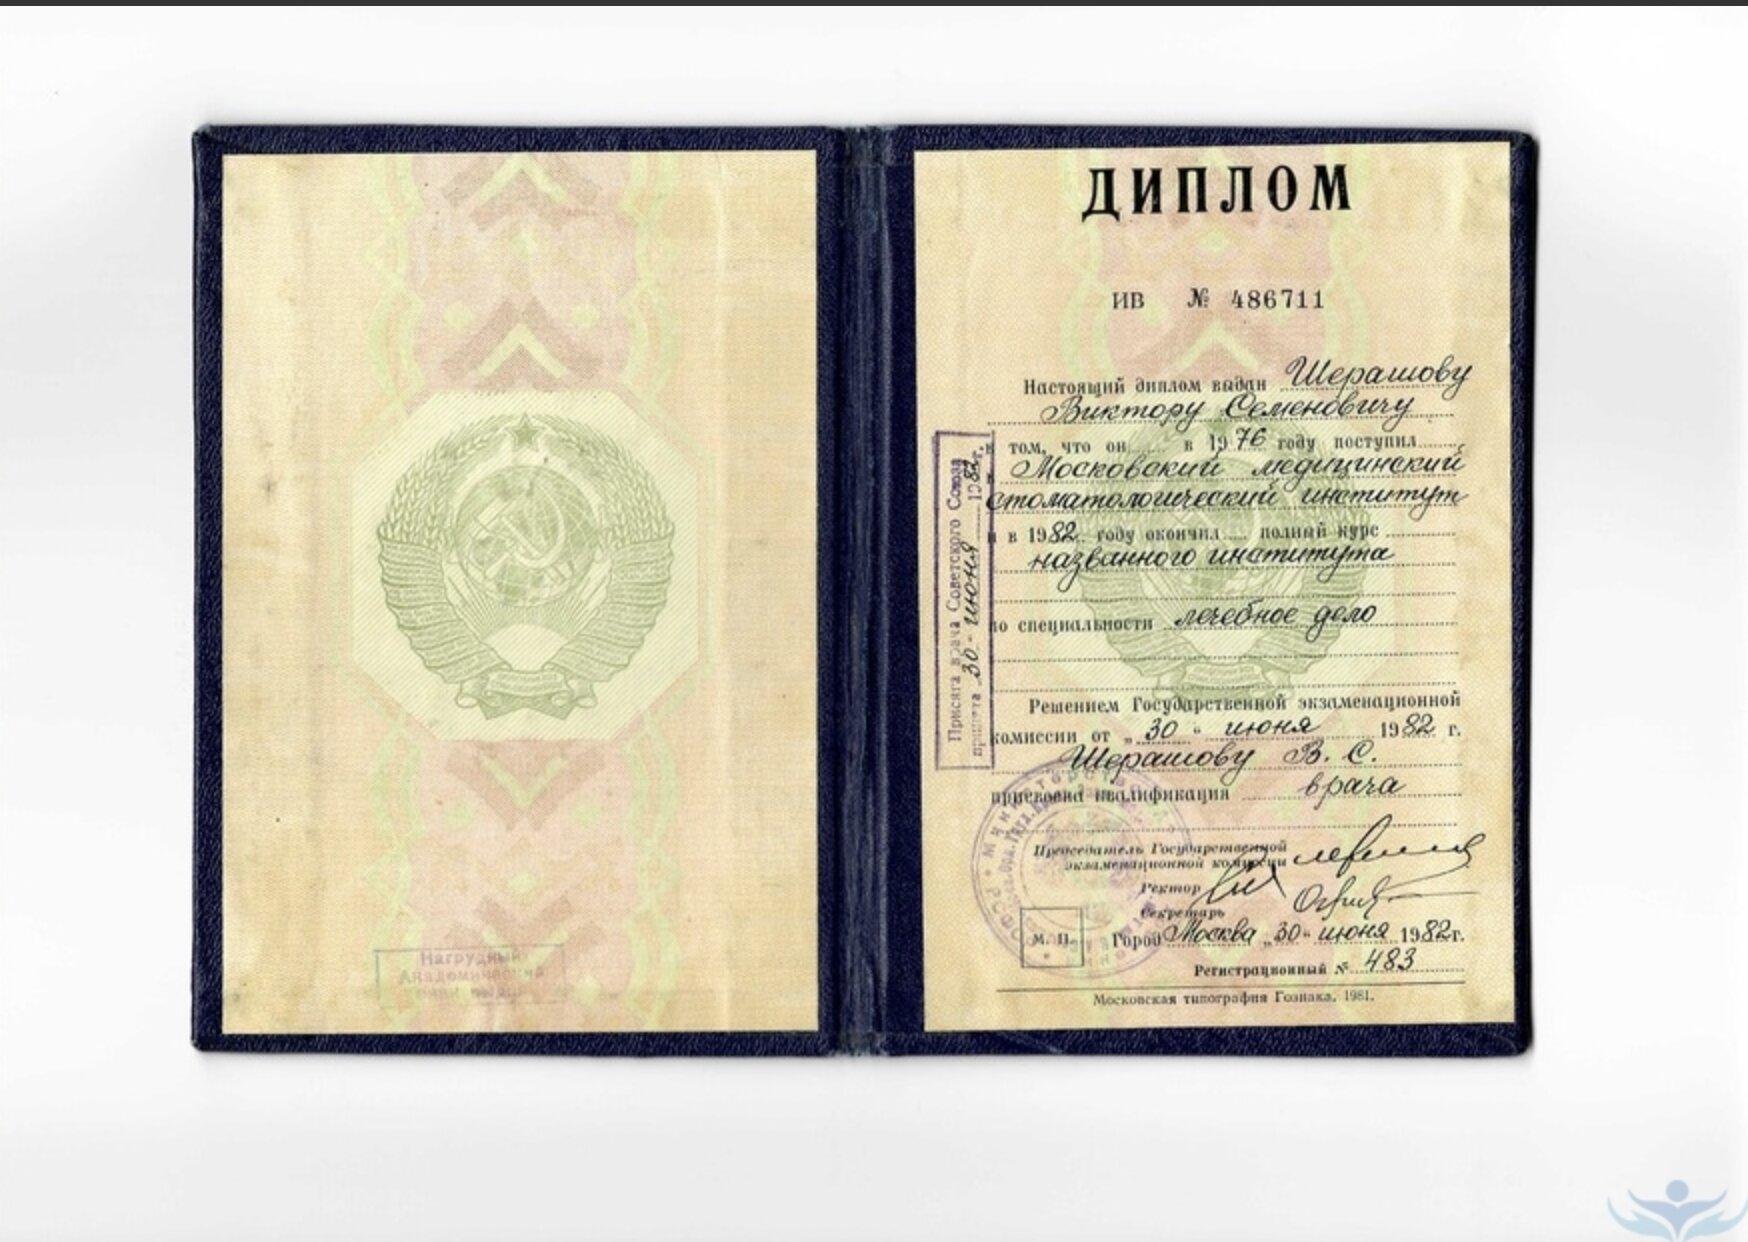 ДИПЛОМ
ИВ № 486711
Настоящий диплом выдан Шерашову
Виктору Семеновичу
в том, что он в 1976 году поступил
в Московский медицинский
стоматологический институт
и в 1982 году окончил полный курс
названного института
по специальности лечебное дело
Решением Государственной экзаменационной
комиссии от „30“ июня 1982 г.
Шерашову В. С.
присвоена квалификация врача
Председатель Государственной
экзаменационной комиссии
Ректор
Секретарь
М. П. Город Москва „30“ июня 1982 г.
Регистрационный № 483
Московская типография Гознака. 1981.
Присяга врача Советского Союза
принята 30 июня 1982 г.
Нагрудный